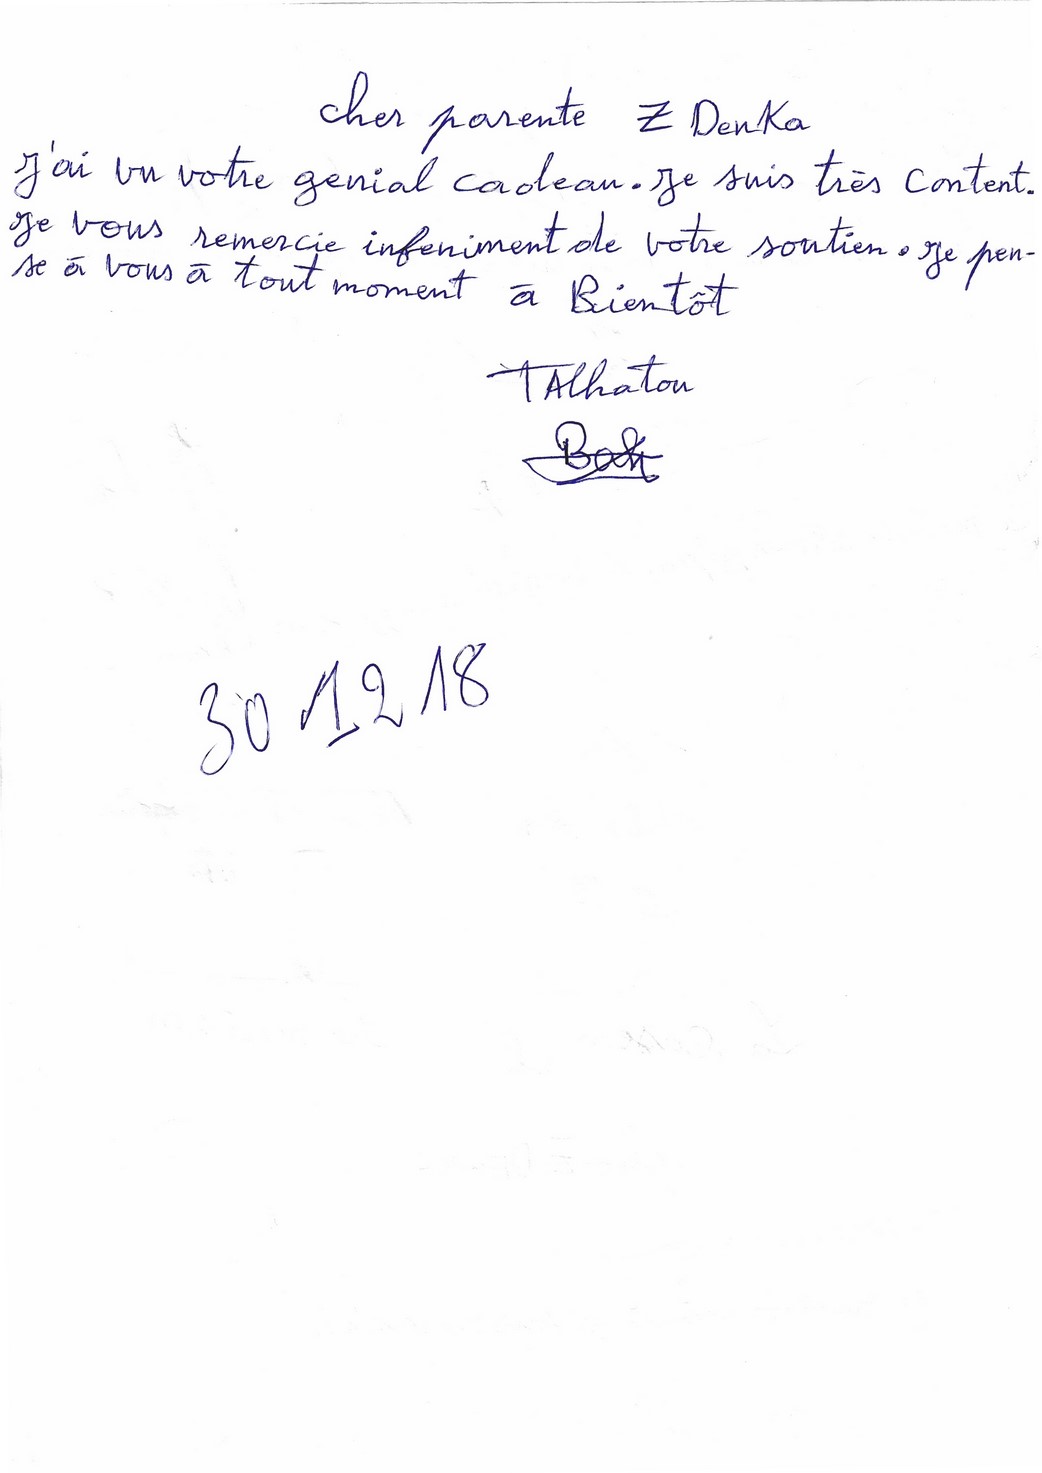 cher parente Z DenKa
J'ai vu votre genial cadeau. Je suis très Content.
Je vous remercie infeniment de votre soutien. Je pen-
se à vous à tout moment à Bientôt
TAlhatou
30 12 18